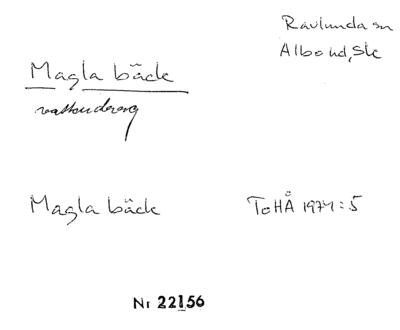 Ravlunda sn
Albo hd, Sk
Magla bäck
vattendrag
Magla bäck
ToHÅ 1974:5
Nr 22156